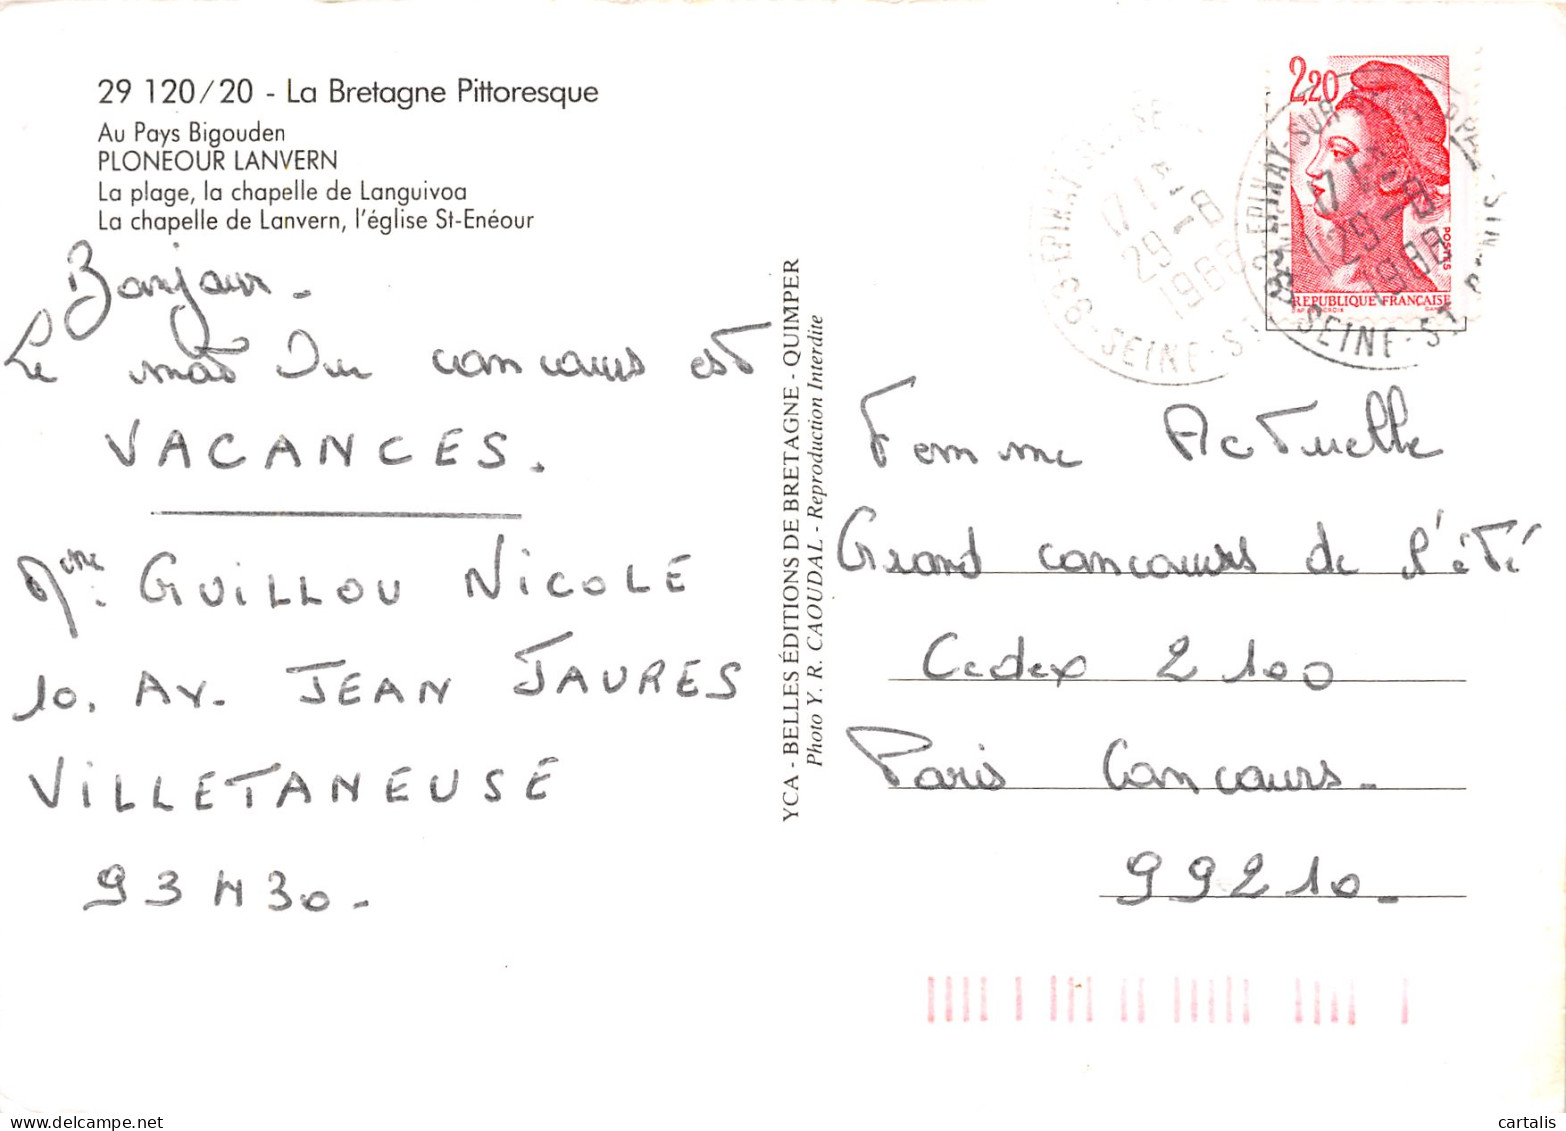 29 120/20 - La Bretagne Pittoresque
Au Pays Bigouden
PLONEOUR LANVERN
La plage, la chapelle de Languivoa
La chapelle de Lanvern, l'église St-Enéour
Bonjour -
Le mot Du concours est
VACANCES.
Mme. GUILLOU NICOLE
10, AV. JEAN JAURES
VILLETANEUSE
93430 -
YCA - BELLES ÉDITIONS DE BRETAGNE - QUIMPER
Photo Y. R. CAOUDAL - Reproduction Interdite
2,20
POSTES
REPUBLIQUE FRANÇAISE
17 H
29-8
1988
93 - SEINE-ST
17 H
29-8
1988
93 EPINAY-SUR-SEINE
SEINE-ST DENIS
Femme Actuelle
Grand concours de l'été
Cedex 2100
Paris Concours -
99210 -
cartalis
www.delcampe.net